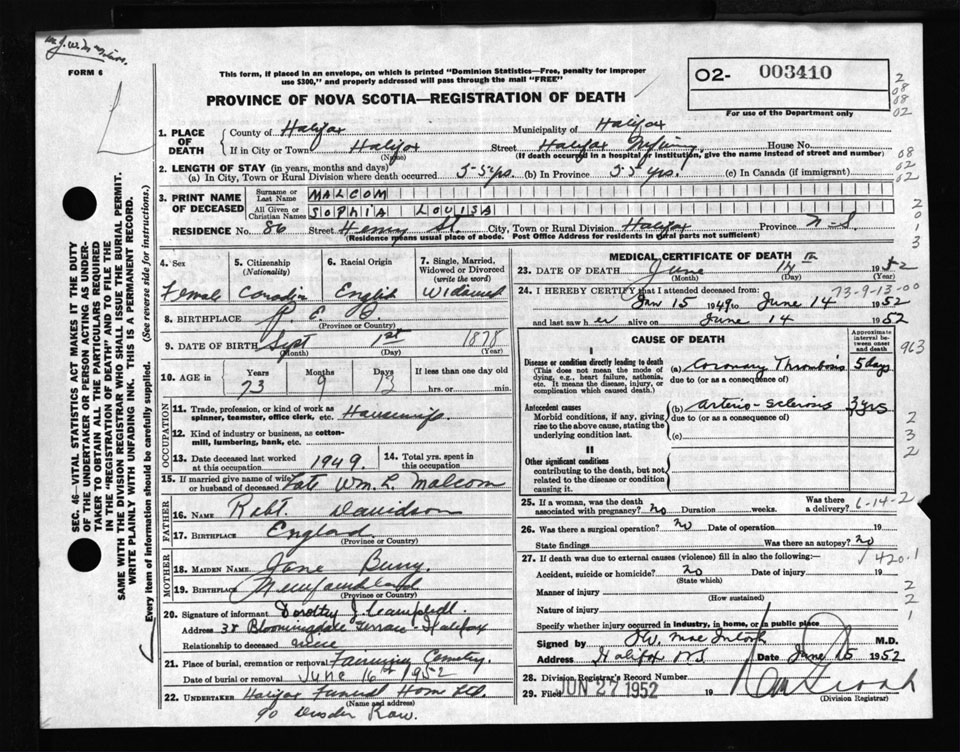 FORM 6
This form, if placed in an envelope, on which is printed "Dominion Statistics—Free, penalty for improper
use $300," and properly addressed will pass through the mail "FREE"
02- 003410
For use of the Department only
PROVINCE OF NOVA SCOTIA—REGISTRATION OF DEATH
1. PLACE OF DEATH County of Halifax Municipality of Halifax
If in City or Town Halifax Street Halifax House No.
(Name) (If death occurred in a hospital or institution, give the name instead of street and number)
2. LENGTH OF STAY (in years, months and days)
(a) In City, Town or Rural Division where death occurred 55 yrs. (b) In Province 55 yrs. (c) In Canada (if immigrant)
3. PRINT NAME OF DECEASED Surname or Last Name MALCOM
All Given or Christian Names SOPHIA LOUISA
RESIDENCE No. 86 Street Henry St. City, Town or Rural Division Halifax Province N-S.
(Residence means usual place of abode. Post Office Address for residents in rural parts not sufficient)
4. Sex 5. Citizenship (Nationality) 6. Racial Origin 7. Single, Married, Widowed or Divorced (write the word)
Female Canadian English Widowed
8. BIRTHPLACE P. E. I.
(Province or Country)
9. DATE OF BIRTH Sept 1st 1878
(Month) (Day) (Year)
10. AGE in Years Months Days If less than one day old
73 9 13 hrs. or min.
OCCUPATION
11. Trade, profession, or kind of work as spinner, teamster, office clerk, etc. Housewife
12. Kind of industry or business, as cotton-mill, lumbering, bank, etc.
13. Date deceased last worked at this occupation 1949. 14. Total yrs. spent in this occupation
15. If married give name of wife or husband of deceased Late Wm. L. Malcom
FATHER
16. NAME Robt. Davidson
17. BIRTHPLACE England
(Province or Country)
MOTHER
18. MAIDEN NAME Jane Burry
19. BIRTHPLACE Newfoundland
(Province or Country)
20. Signature of informant Dorothy J. Campbell.
Address 38 Bloomingdale Terrace - Halifax
Relationship to deceased niece
21. Place of burial, cremation or removal Fairview Cemetery.
Date of burial or removal June 16th 1952
22. UNDERTAKER Halifax Funeral Home Ltd.
(Name and address)
90 Row.
MEDICAL CERTIFICATE OF DEATH
23. DATE OF DEATH June 14 1952
(Month) (Day) (Year)
24. I HEREBY CERTIFY that I attended deceased from: 73-9-13-00
Jan 15 1949 to June 14 1952
and last saw her alive on June 14 1952
CAUSE OF DEATH Approximate interval between onset and death
I
Disease or condition directly leading to death
(This does not mean the mode of dying, e.g., heart failure, asthenia, etc. It means the disease, injury, or complication which caused death.)
(a) Coronary Thrombosis 5 days
due to (or as a consequence of)
Antecedent causes
Morbid conditions, if any, giving rise to the above cause, stating the underlying condition last.
(b) Arterio-sclerosis 3 yrs
due to (or as a consequence of)
(c)
II
Other significant conditions
contributing to the death, but not related to the disease or condition causing it.
25. If a woman, was the death associated with pregnancy? No Duration weeks. Was there a delivery? 6-14-2
26. Was there a surgical operation? No Date of operation 19
State findings Was there an autopsy? No
27. If death was due to external causes (violence) fill in also the following:— 420.1
Accident, suicide or homicide? No Date of injury 19
(State which)
Manner of injury
(How sustained)
Nature of injury
Specify whether injury occurred in Industry, in home, or in public place
Signed by M.D.
Address Halifax N.S. Date June 15 1952
28. Division Registrar's Record Number
29. Filed JUN 27 1952 19
(Division Registrar)
2
08
08
02
08
02
02
2
0
1
3
963
2
3
2
2
2
1
SEC. 46—VITAL STATISTICS ACT MAKES IT THE DUTY
OF THE UNDERTAKER OR PERSON ACTING AS UNDER-
TAKER TO OBTAIN ALL THE PARTICULARS REQUIRED
IN THE "REGISTRATION OF DEATH" AND TO FILE THE
SAME WITH THE DIVISION REGISTRAR WHO SHALL ISSUE THE BURIAL PERMIT.
WRITE PLAINLY WITH UNFADING INK. THIS IS A PERMANENT RECORD.
Every item of information should be carefully supplied. (See reverse side for instructions.)